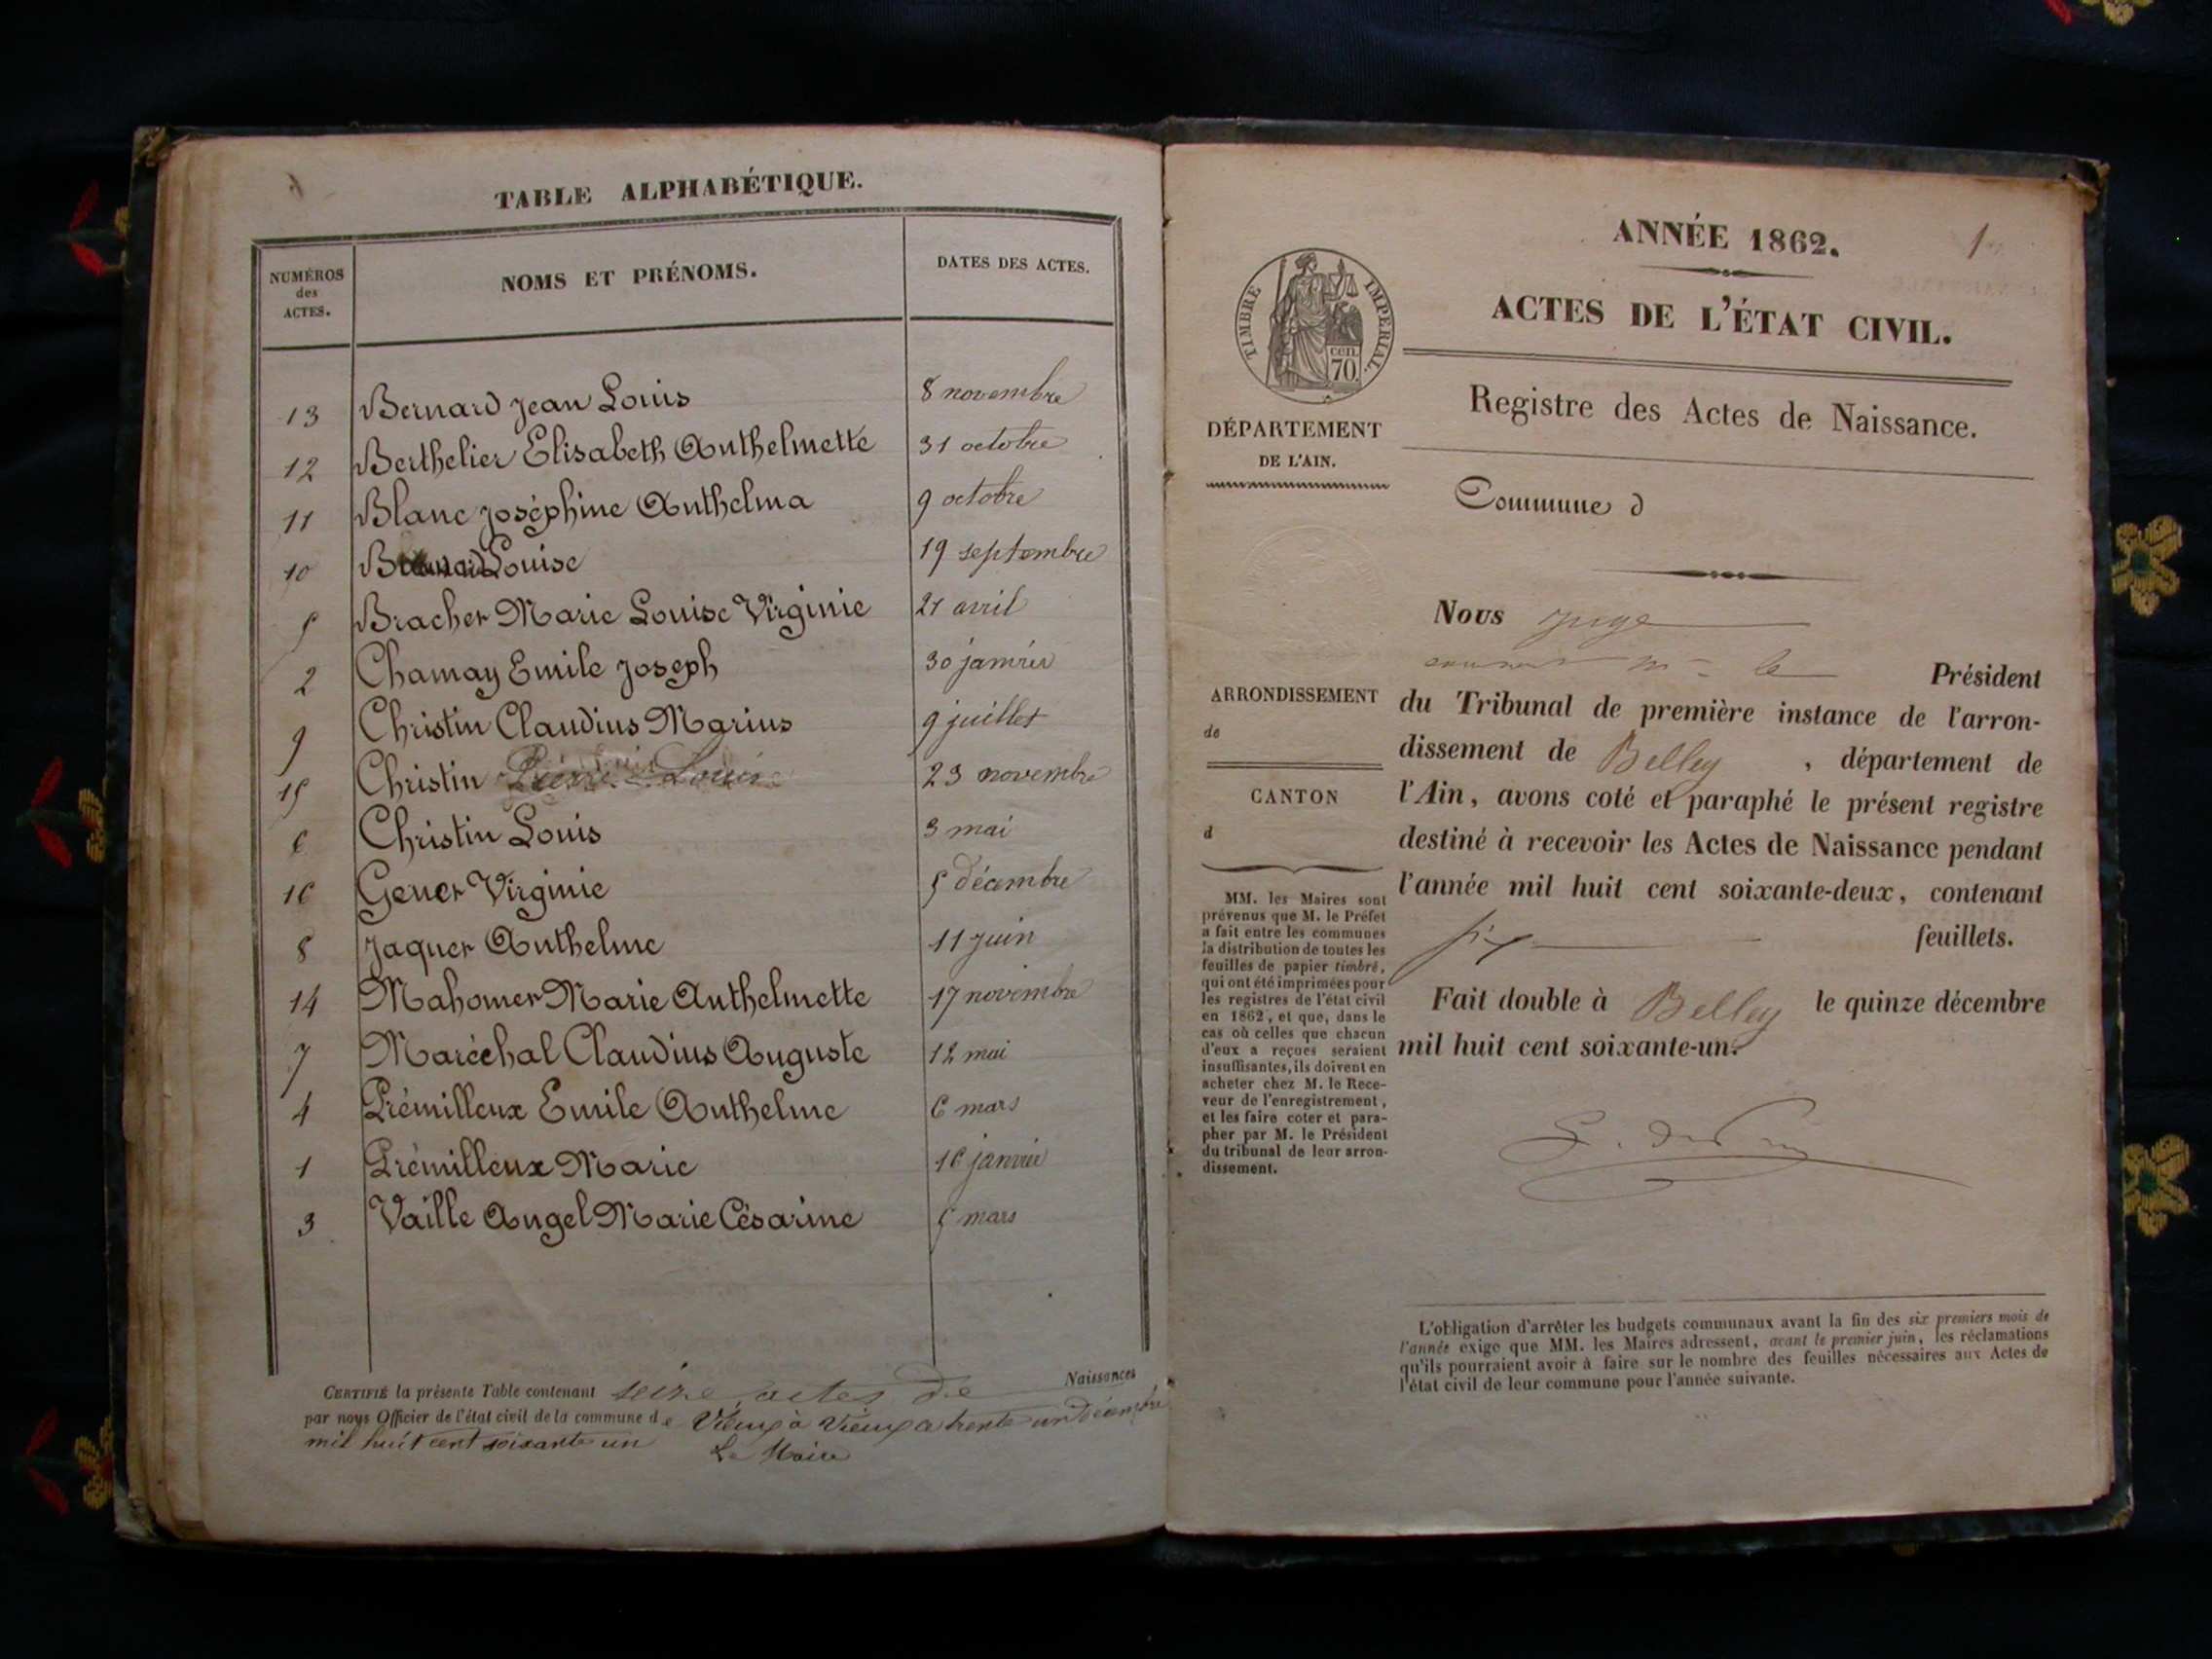 TABLE ALPHABÉTIQUE.
NUMÉROS des ACTES. NOMS ET PRÉNOMS. DATES DES ACTES.
13 Bernard Jean Louis 8 novembre
12 Berthelier Elisabeth Anthelmette 31 octobre
11 Blanc Joséphine Anthelma 9 octobre
10 Louise 19 septembre
5 Brachet Marie Louise Virginie 21 avril
2 Chamay Emile Joseph 30 janvier
9 Christin Claudius Marius 9 juillet
15 Christin 23 novembre
6 Christin Louis 3 mai
16 Genet Virginie 5 décembre
8 Jaquet Anthelme 11 juin
14 Mahomet Marie Anthelmette 17 novembre
7 Maréchal Claudius Auguste 12 mai
4 Prémilleux Emile Anthelme 6 mars
1 Prémilleux Marie 16 janvier
3 Vaille Angel Marie Césarine 5 mars
CERTIFIÉ la présente Table contenant seize actes de Naissances
par nous Officier de l'état civil de la commune de Vieux à Vieux a trente un Décembre
mil huit cent soixante un
Le Maire
1
ANNÉE 1862.
ACTES DE L'ÉTAT CIVIL.
Registre des Actes de Naissance.
Commune d
TIMBRE IMPERIAL.
cen.
70.
DÉPARTEMENT
DE L'AIN.
ARRONDISSEMENT
de
CANTON
d
MM. les Maires sont
prévenus que M. le Préfet
a fait entre les communes
la distribution de toutes les
feuilles de papier timbré,
qui ont été imprimées pour
les registres de l'état civil
en 1862, et que, dans le
cas où celles que chacun
d'eux a reçues seraient
insuffisantes, ils doivent en
acheter chez M. le Rece-
veur de l'enregistrement,
et les faire coter et para-
pher par M. le Président
du tribunal de leur arron-
dissement.
Nous juge
le Président
du Tribunal de première instance de l'arron-
dissement de Belley, département de
l'Ain, avons coté et paraphé le présent registre
destiné à recevoir les Actes de Naissance pendant
l'année mil huit cent soixante-deux, contenant
six feuillets.
Fait double à Belley le quinze décembre
mil huit cent soixante-un.
L'obligation d'arrêter les budgets communaux avant la fin des six premiers mois de
l'année exige que MM. les Maires adressent, avant le premier juin, les réclamations
qu'ils pourraient avoir à faire sur le nombre des feuilles nécessaires aux Actes de
l'état civil de leur commune pour l'année suivante.